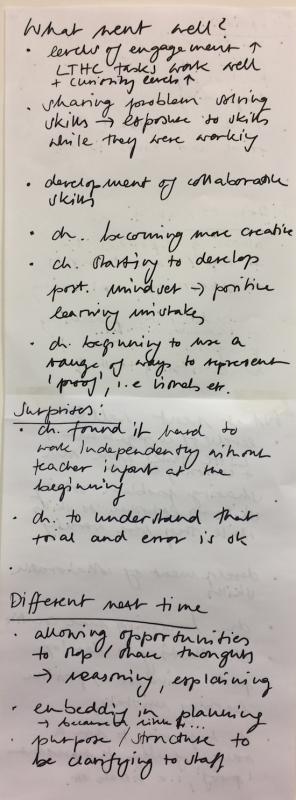 What went well?
• levels of engagement ↑
LTHC tasks work well
+ curiosity levels ↑
• sharing problem solving
skills → exposure to skills
while they were working
• development of collaborative
skills
• ch. becoming more creative
• ch. starting to develop
post. mindset → positive
learning mistakes
• ch. beginning to use a
range of ways to represent
'proof', i.e visuals etc.
Surprises:
• ch. found it hard to
work independently without
teacher input at the
beginning
• ch. to understand that
trial and error is ok
•
Different next time
• allowing opportunities
to stop / share thoughts
→ reasoning, explaining
• embedding in planning
→ because
• purpose / structure to
be clarifying to staff